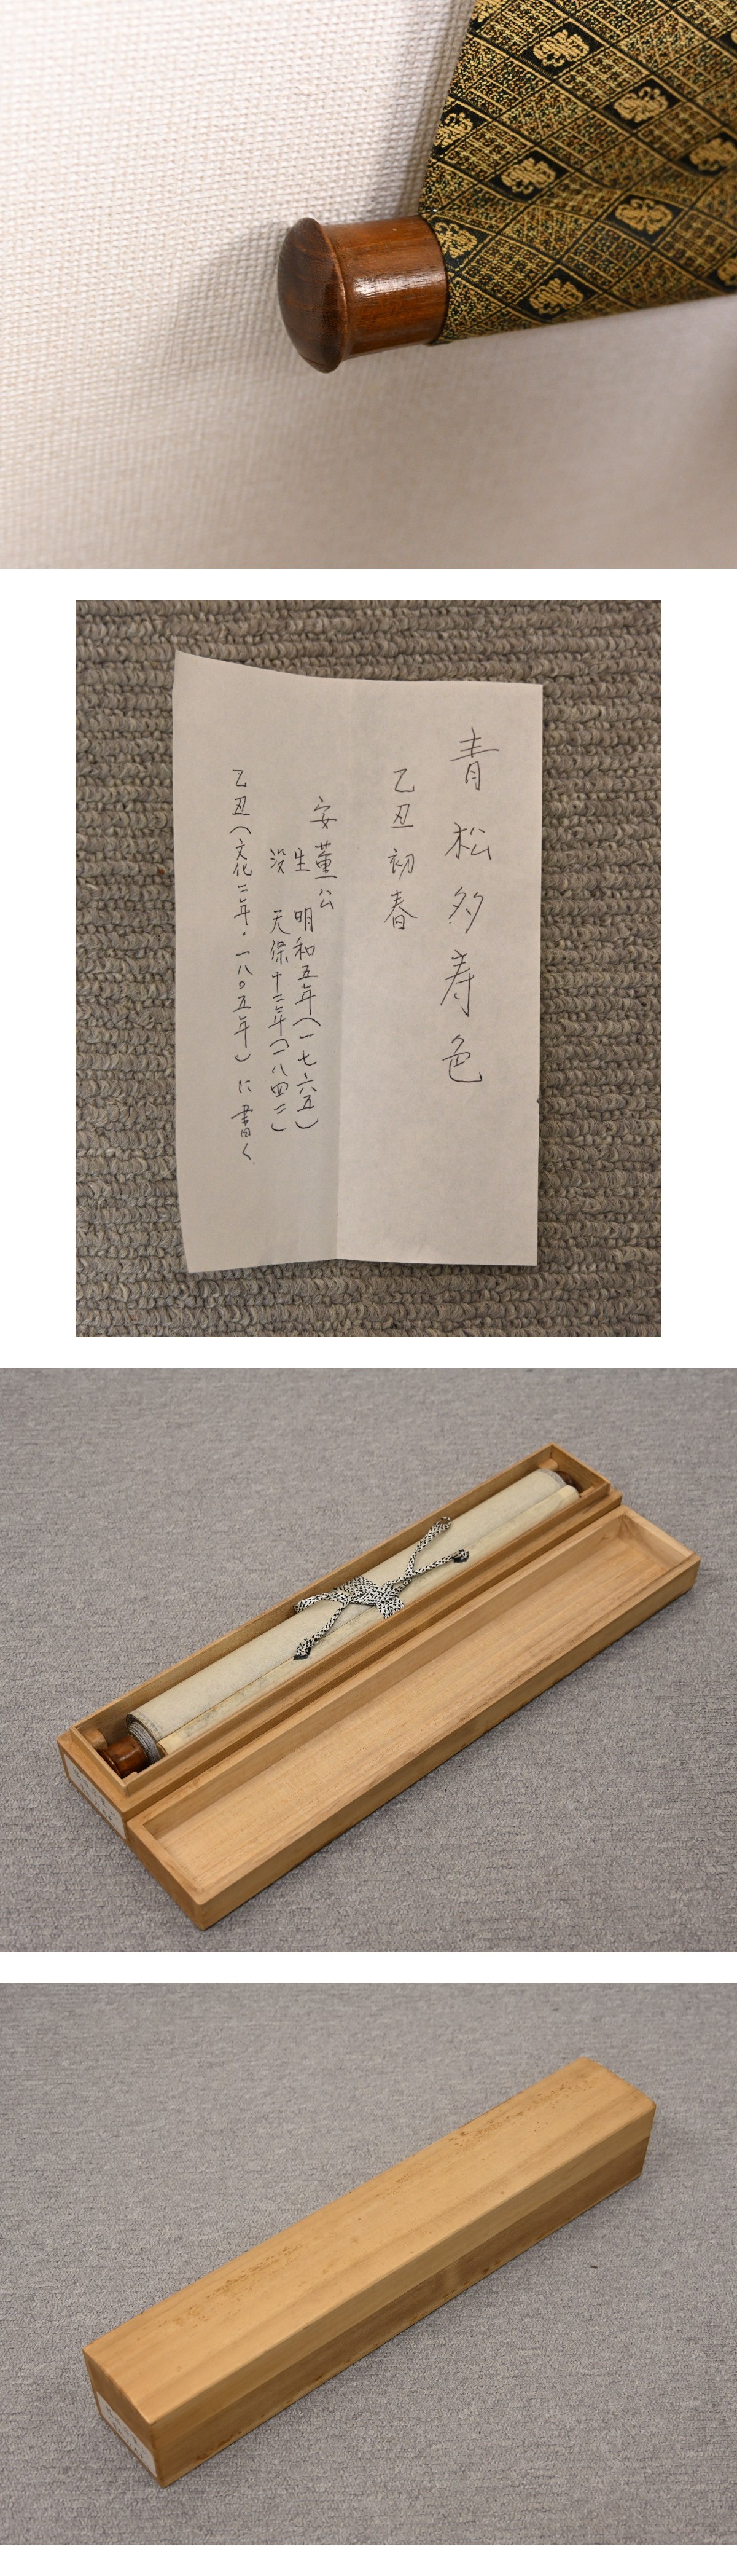 青松多寿色
乙丑初春
安董公
生 明和五年(一七六五)
没 天保十二年(一八四二)
乙丑(文化二年・一八〇五年)に書く